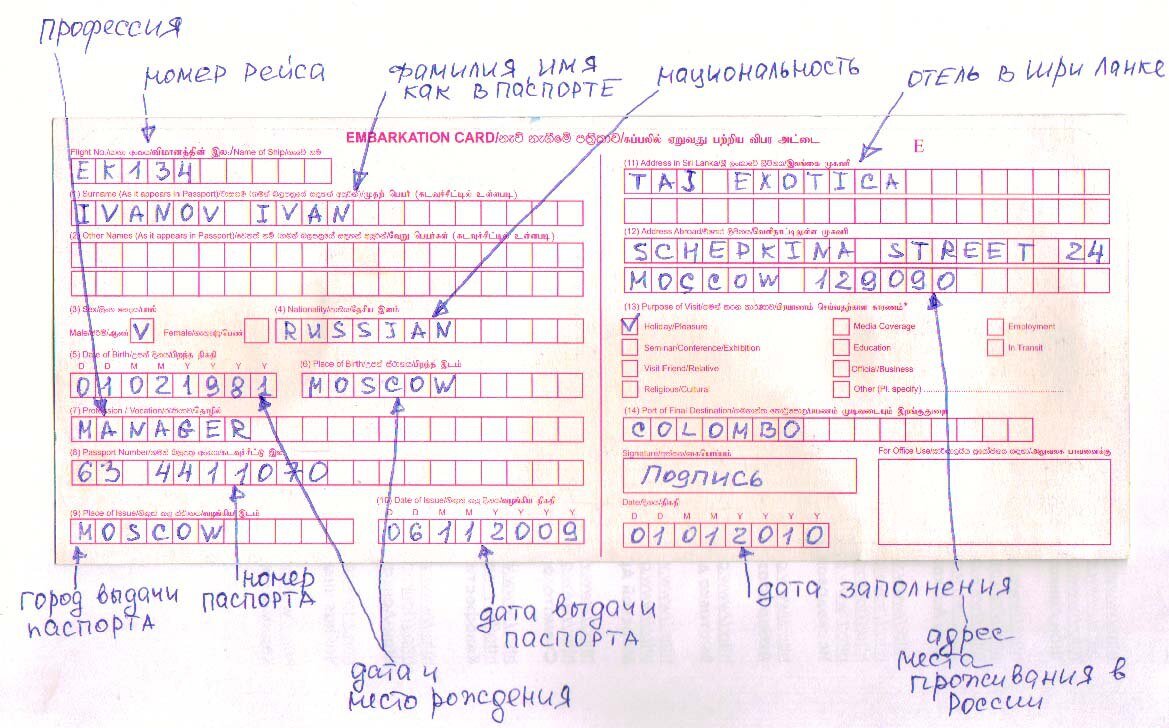 профессия
номер рейса
фамилия, имя
как в паспорте
национальность
отель в Шри Ланке
EMBARKATION CARD/
E
Flight No./ Name of Ship/
EK134
(1) Surname (As it appears in Passport)/
IVANOV IVAN
(2) Other Names (As it appears in Passport)/
(3) Sex/
Male/ V Female/
(4) Nationality/
RUSSIAN
(5) Date of Birth/
D D M M Y Y Y Y
01021981
(6) Place of Birth/
MOSCOW
(7) Profession / Vocation/
MANAGER
(8) Passport Number/
63 4411070
(9) Place of Issue/
MOSCOW
(10) Date of Issue/
D D M M Y Y Y Y
06112009
(11) Address in Sri Lanka/
TAJ EXOTICA
(12) Address Abroad/
SCHEPKINA STREET 24
MOSCOW 129090
(13) Purpose of Visit/
Holiday/Pleasure
Media Coverage
Employment
Seminar/Conference/Exhibition
Education
In Transit
Visit Friend/Relative
Official/Business
Religious/Cultural
Other (Pl. specify)
(14) Port of Final Destination/
COLOMBO
Signature/
Подпись
For Office Use/
Date/
D D M M Y Y Y Y
01012010
город выдачи
паспорта
номер
паспорта
дата и
место рождения
дата выдачи
паспорта
дата заполнения
адрес
места
проживания в
России